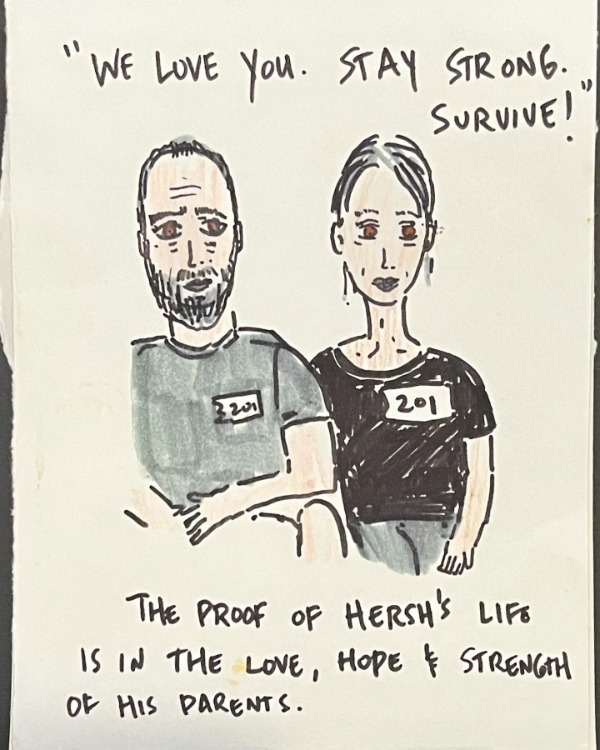 "WE LOVE YOU. STAY STRONG.
SURVIVE!"
201
201
THE PROOF OF HERSH'S LIFE
IS IN THE LOVE, HOPE & STRENGTH
OF HIS PARENTS.